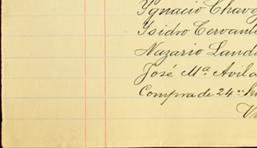 Ygnacio Chavez
Ysidro Cervante
Nazario Land
José Mª. Avila
Compra de 24